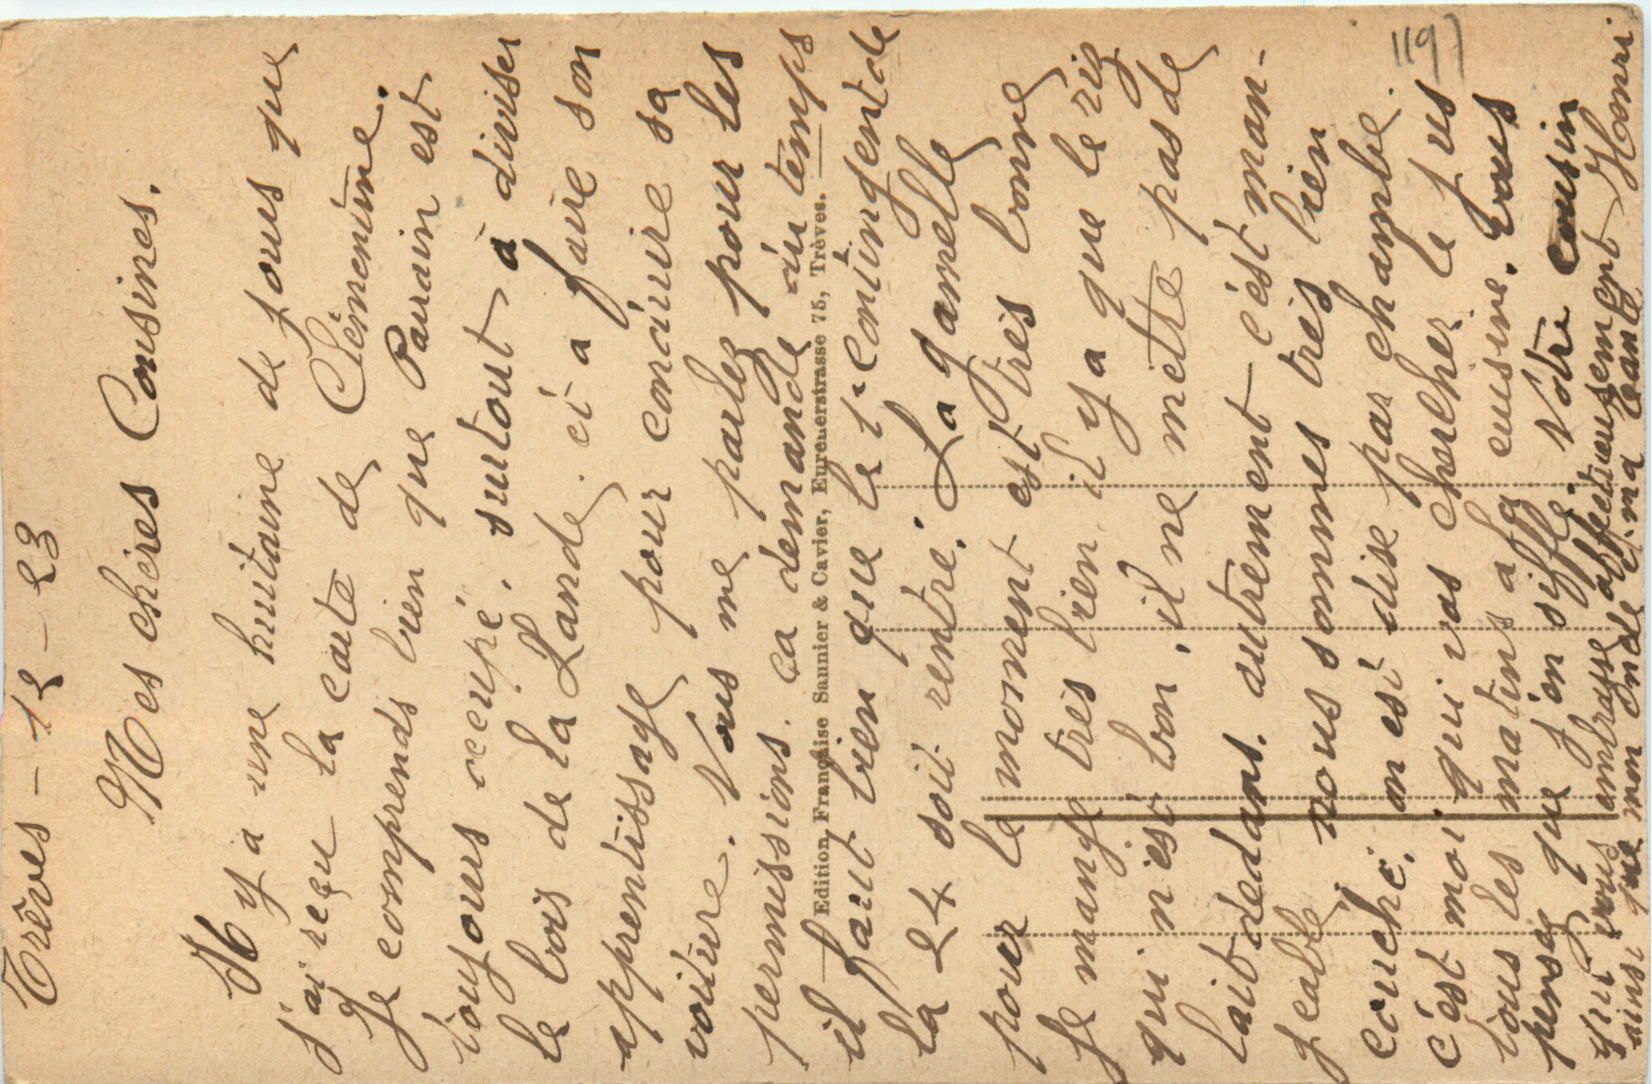 Trêves - 12 - 23
Mes chères Cousines.
Il y a une huitaine de jours que
j'ai reçu la carte de Clèmentine.
Je comprends bien que Parrain est
toujours occupé, surtout à diviser
le bois de la Lande. et a faire son
apprentissage pour conduire sa
voiture. Vous me parlez pour les
permissions. ça demande du temps
il faut bien que le 1er contingent de
la 24 soit rentré. La gamelle
pour le moment est très bonne
je mange très bien il y a que le riz
qui n'est bon, il ne mette pas de
lait dedans. autrement c'est man-
geable, nous sommes très bien
couché. on est dise par chambre.
c'est moi qui vas chercher le jus
tous les matins a la cuisine. vous
pensez que j'en siffle. Vôtre cousin
qui vous embrasse affectueusement Henri
ainsi que mon oncle et ma tante
Edition Française Saunier & Cavier, Eurenerstrasse 75, Trèves.
119